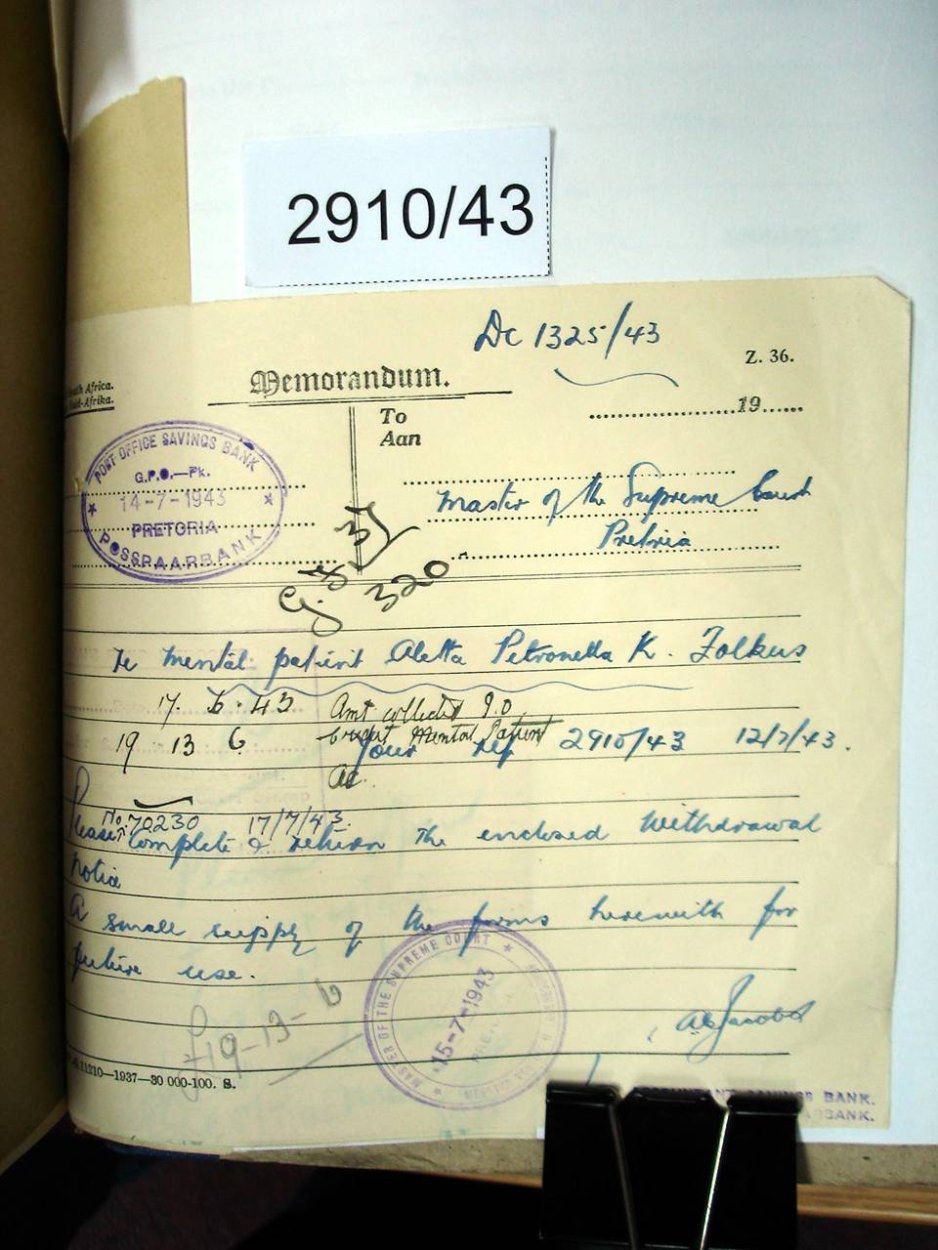 2910/43
Dc 1325/43
Z. 36.
Memorandum.
th Africa.
-Afrika.
19
To
Aan
POST OFFICE SAVINGS BANK
G.P.O.—Pk.
14-7-1943
PRETORIA
POSSPAARBANK
Master of the Supreme Court
Pretoria
37
320
Re mental patient Aletta Petronella K. Folkus
17. 6. 43 Amt collected
19 13 6 Credit Mental Patient
Your ref 2910/43 12/7/43.
Ac.
No. 70230 17/7/43.
Please complete & return the enclosed withdrawal
notice
A small supply of the forms herewith for
future use.
MASTER OF THE SUPREME COURT
15-7-1943
£19-13-6
Jacobs
1210—1937—30 000-100. S.
SAVINGS BANK.
BANK.